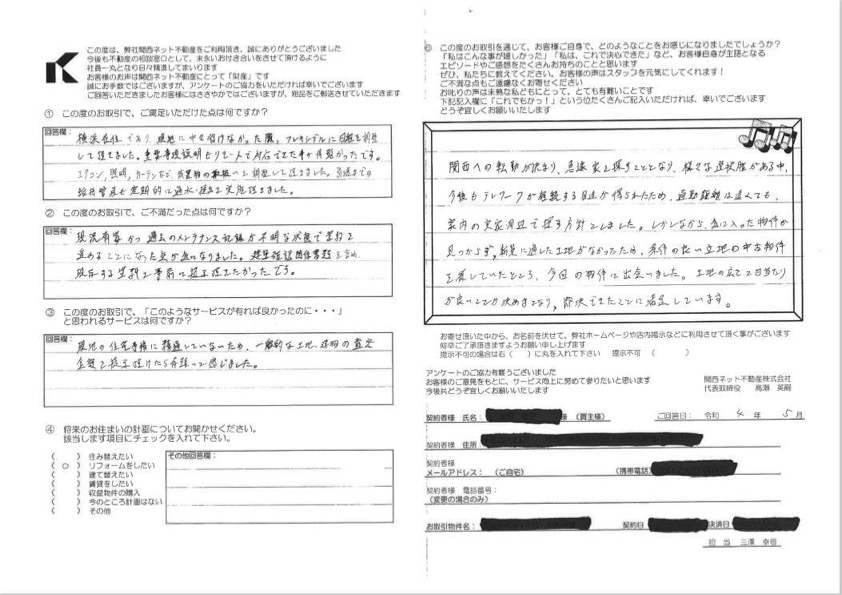 この度は、弊社関西ネット不動産をご利用頂き、誠にありがとうございました
今後も不動産の相談窓口として、末永いお付き合いをさせて頂けるように
社員一丸となり日々精進してまいります
お客様のお声は関西ネット不動産にとって「財産」です
誠にお手数ではございますが、アンケートのご協力をいただければ幸いでございます
ご回答いただきましたお客様にはささやかではございますが、粗品をご郵送させていただきます
① この度のお取引で、ご満足いただけた点は何ですか?
回答欄:
横浜在住であり、現地に中々行けなかった際、フレキシブルに日程を調整
して頂きました。重要事項説明もリモートで対応できた事が良かったです。
エアコン、照明、カーテンなど、
② この度のお取引で、ご不満だった点は何ですか?
回答欄:
現況有姿かつ過去のメンテナンス記録が不明な状態で契約を
進めることになった点が気になりました。建築確認関係書類を含め、
現存する書類を事前に提示頂きたかったです。
③ この度のお取引で、「このようなサービスが有れば良かったのに・・・」
と思われるサービスは何ですか?
回答欄:
現地の住宅事情に精通していないため、一般的な土地、建物の査定
金額を提示頂けたら有難いと感じました。
④ 将来のお住まいの計画についてお聞かせください。
該当します項目にチェックを入れて下さい。
( ) 住み替えたい
( ○ ) リフォームをしたい
( ) 建て替えたい
( ) 賃貸をしたい
( ) 収益物件の購入
( ) 今のところ計画はない
( ) その他
その他回答欄:
⑤ この度のお取引を通じて、お客様ご自身で、どのようなことをお感じになりましたでしょうか?
「私はこんな事が嬉しかった」「私は、これで決心できた」など、お客様自身が主語となる
エピソードやご感想をたくさんお持ちのことと思います
ぜひ、私たちに教えてください。お客様の声はスタッフを元気にしてくれます!
ご不満な点もご遠慮なくお寄せください
お叱りの声は未熟な私どもにとって、とても有難いことです
下記記入欄に「これでもかっ!」という位たくさんご記入いただければ、幸いでございます
どうぞ宜しくお願いいたします
関西への転勤が決まり、急遽家を探すこととなり、様々な選択肢がある中、
今後もテレワークが継続する目途が得られたため、通勤距離は遠くても、
案内の実家周辺で探す方針としました。しかしながら、気に入った物件が
見つからず、新築に適した土地がなかったため、条件の良い立地の中古物件
を探していたところ、今回の物件に出会いました。土地の広さと日当たり
が良いことが決め手となり、即決できたことに満足しています。
お寄せ頂いた中から、お名前を伏せて、弊社ホームページや店内掲示などに利用させて頂く事がございます
何卒ご了承頂きますようお願い申し上げます
提示不可の場合は右( )に丸を入れて下さい 提示不可 ( )
アンケートのご協力有難うございました
お客様のご意見をもとに、サービス向上に努めて参りたいと思います
今後共どうぞ宜しくお願いいたします
関西ネット不動産株式会社
代表取締役 高瀬 英嗣
契約者様 氏名: 様 (買主様) ご回答日: 令和 4 年 5 月
契約者様 住所:
契約者様
メールアドレス: (ご自宅) (携帯電話)
契約者様 電話番号:
(変更の場合のみ)
お取引物件名: 契約日 決済日
担当 三澤 幸樹